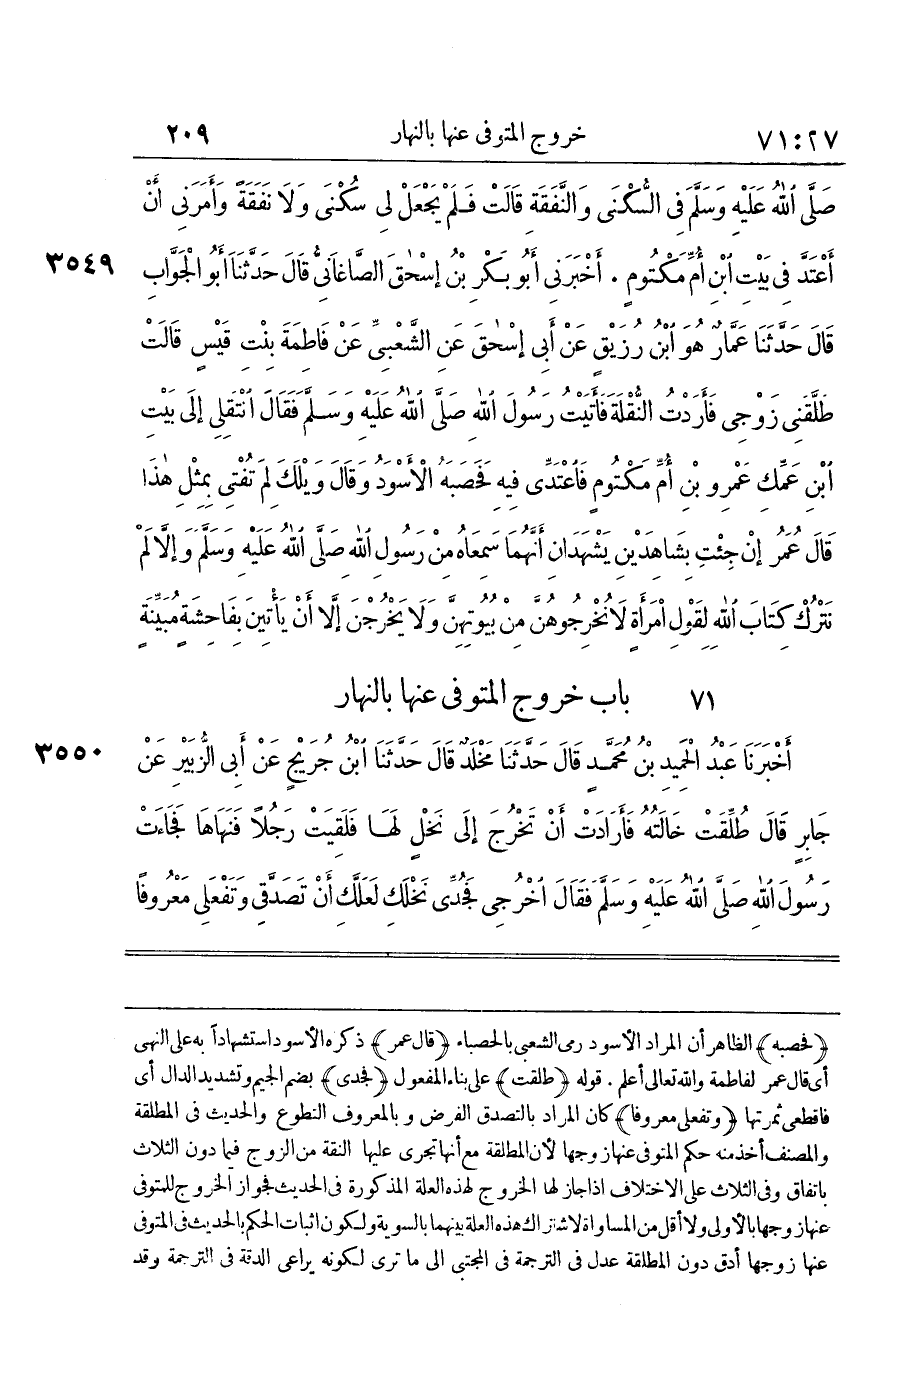 ٧١:٢٧ خروج المتوفى عنها بالنهار ٢٠٩
صَلَّى ٱللهُ عَلَيْهِ وَسَلَّمَ فِى السُّكْنَى وَالنَّفَقَةِ قَالَتْ فَلَمْ يَجْعَلْ لِى سُكْنَى وَلَا نَفَقَةً وَأَمَرَنِى أَنْ
أَعْتَدَّ فِى بَيْتِ ٱبْنِ أُمِّ مَكْتُومٍ . أَخْبَرَنِى أَبُو بَكْرِ بْنُ إِسْحٰقَ الصَّاغَانِىُّ قَالَ حَدَّثَنَا أَبُو الْجَوَّابِ ٣٥٤٩
قَالَ حَدَّثَنَا عَمَّارٌ هُوَ ٱبْنُ رُزَيْقٍ عَنْ أَبِى إِسْحٰقَ عَنِ الشَّعْبِىِّ عَنْ فَاطِمَةَ بِنْتِ قَيْسٍ قَالَتْ
طَلَّقَنِى زَوْجِى فَأَرَدْتُ النُّقْلَةَ فَأَتَيْتُ رَسُولَ ٱللهِ صَلَّى ٱللهُ عَلَيْهِ وَسَلَّمَ فَقَالَ ٱنْتَقِلِى إِلَى بَيْتِ
ٱبْنِ عَمِّكِ عَمْرِو بْنِ أُمِّ مَكْتُومٍ فَاعْتَدِّى فِيهِ فَحَصَبَهُ الْأَسْوَدُ وَقَالَ وَيْلَكَ لِمَ تُفْتِى بِمِثْلِ هٰذَا
قَالَ عُمَرُ إِنْ جِئْتِ بِشَاهِدَيْنِ يَشْهَدَانِ أَنَّهُمَا سَمِعَاهُ مِنْ رَسُولِ ٱللهِ صَلَّى ٱللهُ عَلَيْهِ وَسَلَّمَ وَإِلَّا لَمْ
نَتْرُكْ كِتَابَ ٱللهِ لِقَوْلِ ٱمْرَأَةٍ لَا تُخْرِجُوهُنَّ مِنْ بُيُوتِهِنَّ وَلَا يَخْرُجْنَ إِلَّا أَنْ يَأْتِينَ بِفَاحِشَةٍ مُبَيِّنَةٍ
٧١ باب خروج المتوفى عنها بالنهار
أَخْبَرَنَا عَبْدُ الْحَمِيدِ بْنُ مُحَمَّدٍ قَالَ حَدَّثَنَا مَخْلَدٌ قَالَ حَدَّثَنَا ٱبْنُ جُرَيْجٍ عَنْ أَبِى الزُّبَيْرِ عَنْ ٣٥٥٠
جَابِرٍ قَالَ طُلِّقَتْ خَالَتُهُ فَأَرَادَتْ أَنْ تَخْرُجَ إِلَى نَخْلٍ لَهَا فَلَقِيَتْ رَجُلًا فَنَهَاهَا فَجَاءَتْ
رَسُولَ ٱللهِ صَلَّى ٱللهُ عَلَيْهِ وَسَلَّمَ فَقَالَ ٱخْرُجِى فَجُدِّى نَخْلَكِ لَعَلَّكِ أَنْ تَصَدَّقِى وَتَفْعَلِى مَعْرُوفًا
﴿فحصبه﴾ الظاهر أن المراد الأسود رمى الشعبى بالحصباء ﴿قال عمر﴾ ذكره الأسود استشهاداً به على النهى
أى قال عمر لفاطمة والله تعالى أعلم . قوله ﴿طلقت﴾ على بناء المفعول ﴿فجدى﴾ بضم الجيم وتشديد الدال أى
فاقطعى ثمرتها ﴿وتفعلى معروفا﴾ كان المراد بالتصدق الفرض و بالمعروف التطوع والحديث فى المطلقة
والمصنف أخذ منه حكم المتوفى عنها زوجها لأن المطلقة مع أنها تجرى عليها النقة من الزوج فيما دون الثلاث
باتفاق وفى الثلاث على الاختلاف اذا جاز لها الخروج لهذه العلة المذكورة فى الحديث فجواز الخروج للمتوفى
عنها زوجها بالأولى ولا أقل من المساواة لاشتراك هذه العلة بينهما بالسوية ولكون اثبات الحكم بالحديث فى المتوفى
عنها زوجها أدق دون المطلقة عدل فى الترجمة فى المجتبى الى ما ترى لكونه يراعى الدقة فى الترجمة وقد